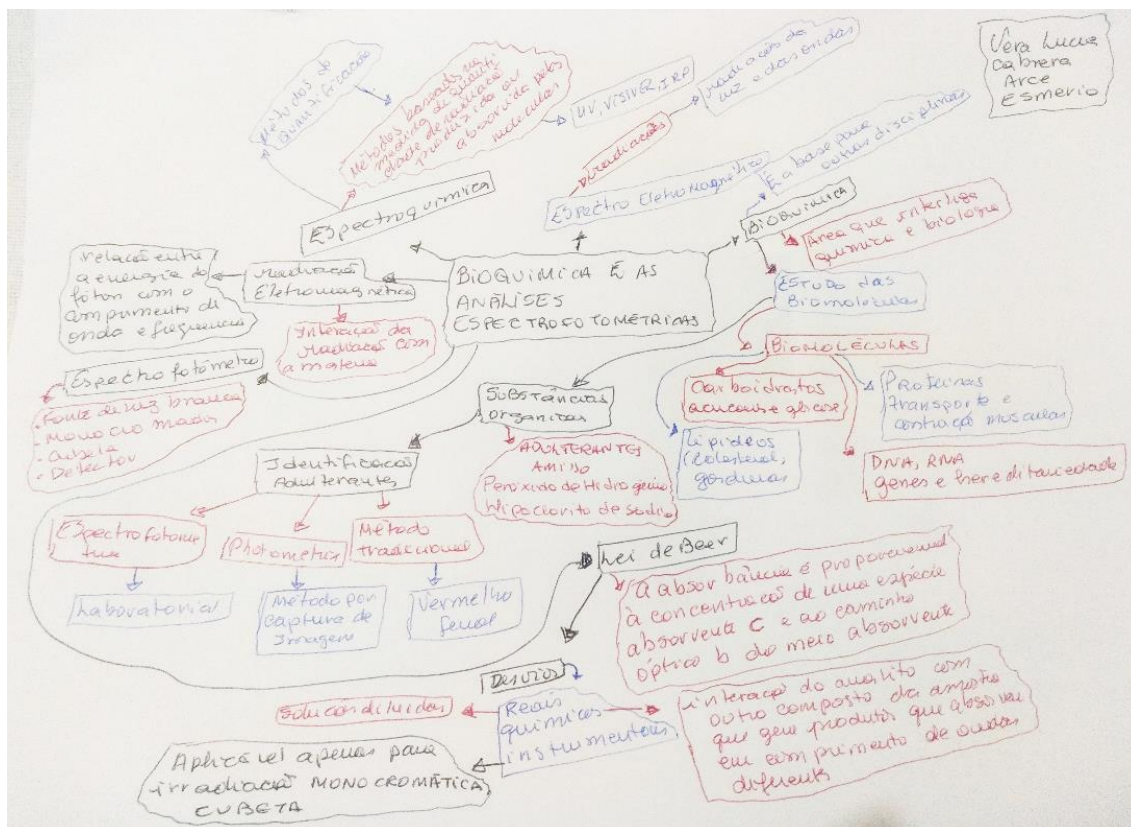 Vera Lucia
Cabrera
Arce
Esmerio
Métodos de
Quantificação
Métodos baseados na
medição de quanti
dade de radiação
produzida ou
absorvida pelas
moleculas
UV, VISIVEL, IRA
irradiações
radiações de
luz e das ondas
É a base para
outras disciplinas
Espectroquimica
Espectro Eletromagnético
Bioquimica
Área que interliga
química e biologia
relação entre
a energia do
fóton com o
comprimento de
onda e frequencia
radiação
Eletromagnética
BIOQUIMICA É AS
ANÁLISES
ESPECTROFOTOMÉTRICAS
Estudo das
Biomoléculas
Interação da
radiação com
a materia
BIOMOLÉCULAS
Espectrofotômetro
- Fonte de luz branca
- Monocromador
- Cubeta
- Detector
Substâncias
organicas
Carboidratos
acucares e glicose
Proteinas
transporte e
contração musculas
Identificação
Adulterantes
ADULTERANTES
AMIDO
Peroxido de Hidrogênio
Hipoclorito de Sodio
Lipideos
(colesterol,
gorduras
DNA, RNA
genes e hereditariedade
Espectrofotome
tria
Photometrix
Método
tradicional
Lei de Beer
Laboratorial
Método por
Captura de
Imagem
Vermelho
fenol
A absorbância é proporcional
à concentração de uma espécie
absorvente C e ao caminho
óptico b do meio absorvente
Desvios
Solucao diluidas
Reais
químicos
instrumentais
interação do analito com
outro composto da amostra
que gera produtos que absorvem
em comprimento de ondas
diferents
Aplicável apenas para
irradiação MONOCROMÁTICA
CUBETA